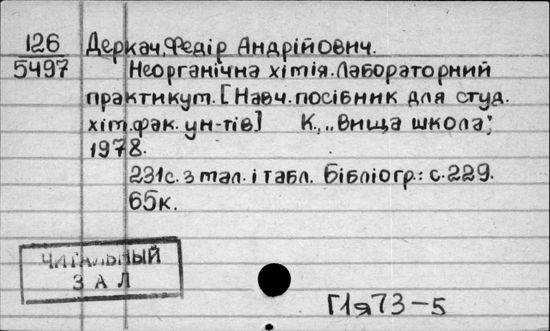 126
5497
Деркач, Федір Андрійович.
Неорганічна хімія. Лабораторний
практикум. [Навч. посібник для студ.
хім. фак. ун-тів] К., „Вища школа",
1978.
231с. з мал. і табл. Бібліогр.: с. 229.
65к.
ЧИТАЛЬНЫЙ
ЗАЛ
Г1я73-5